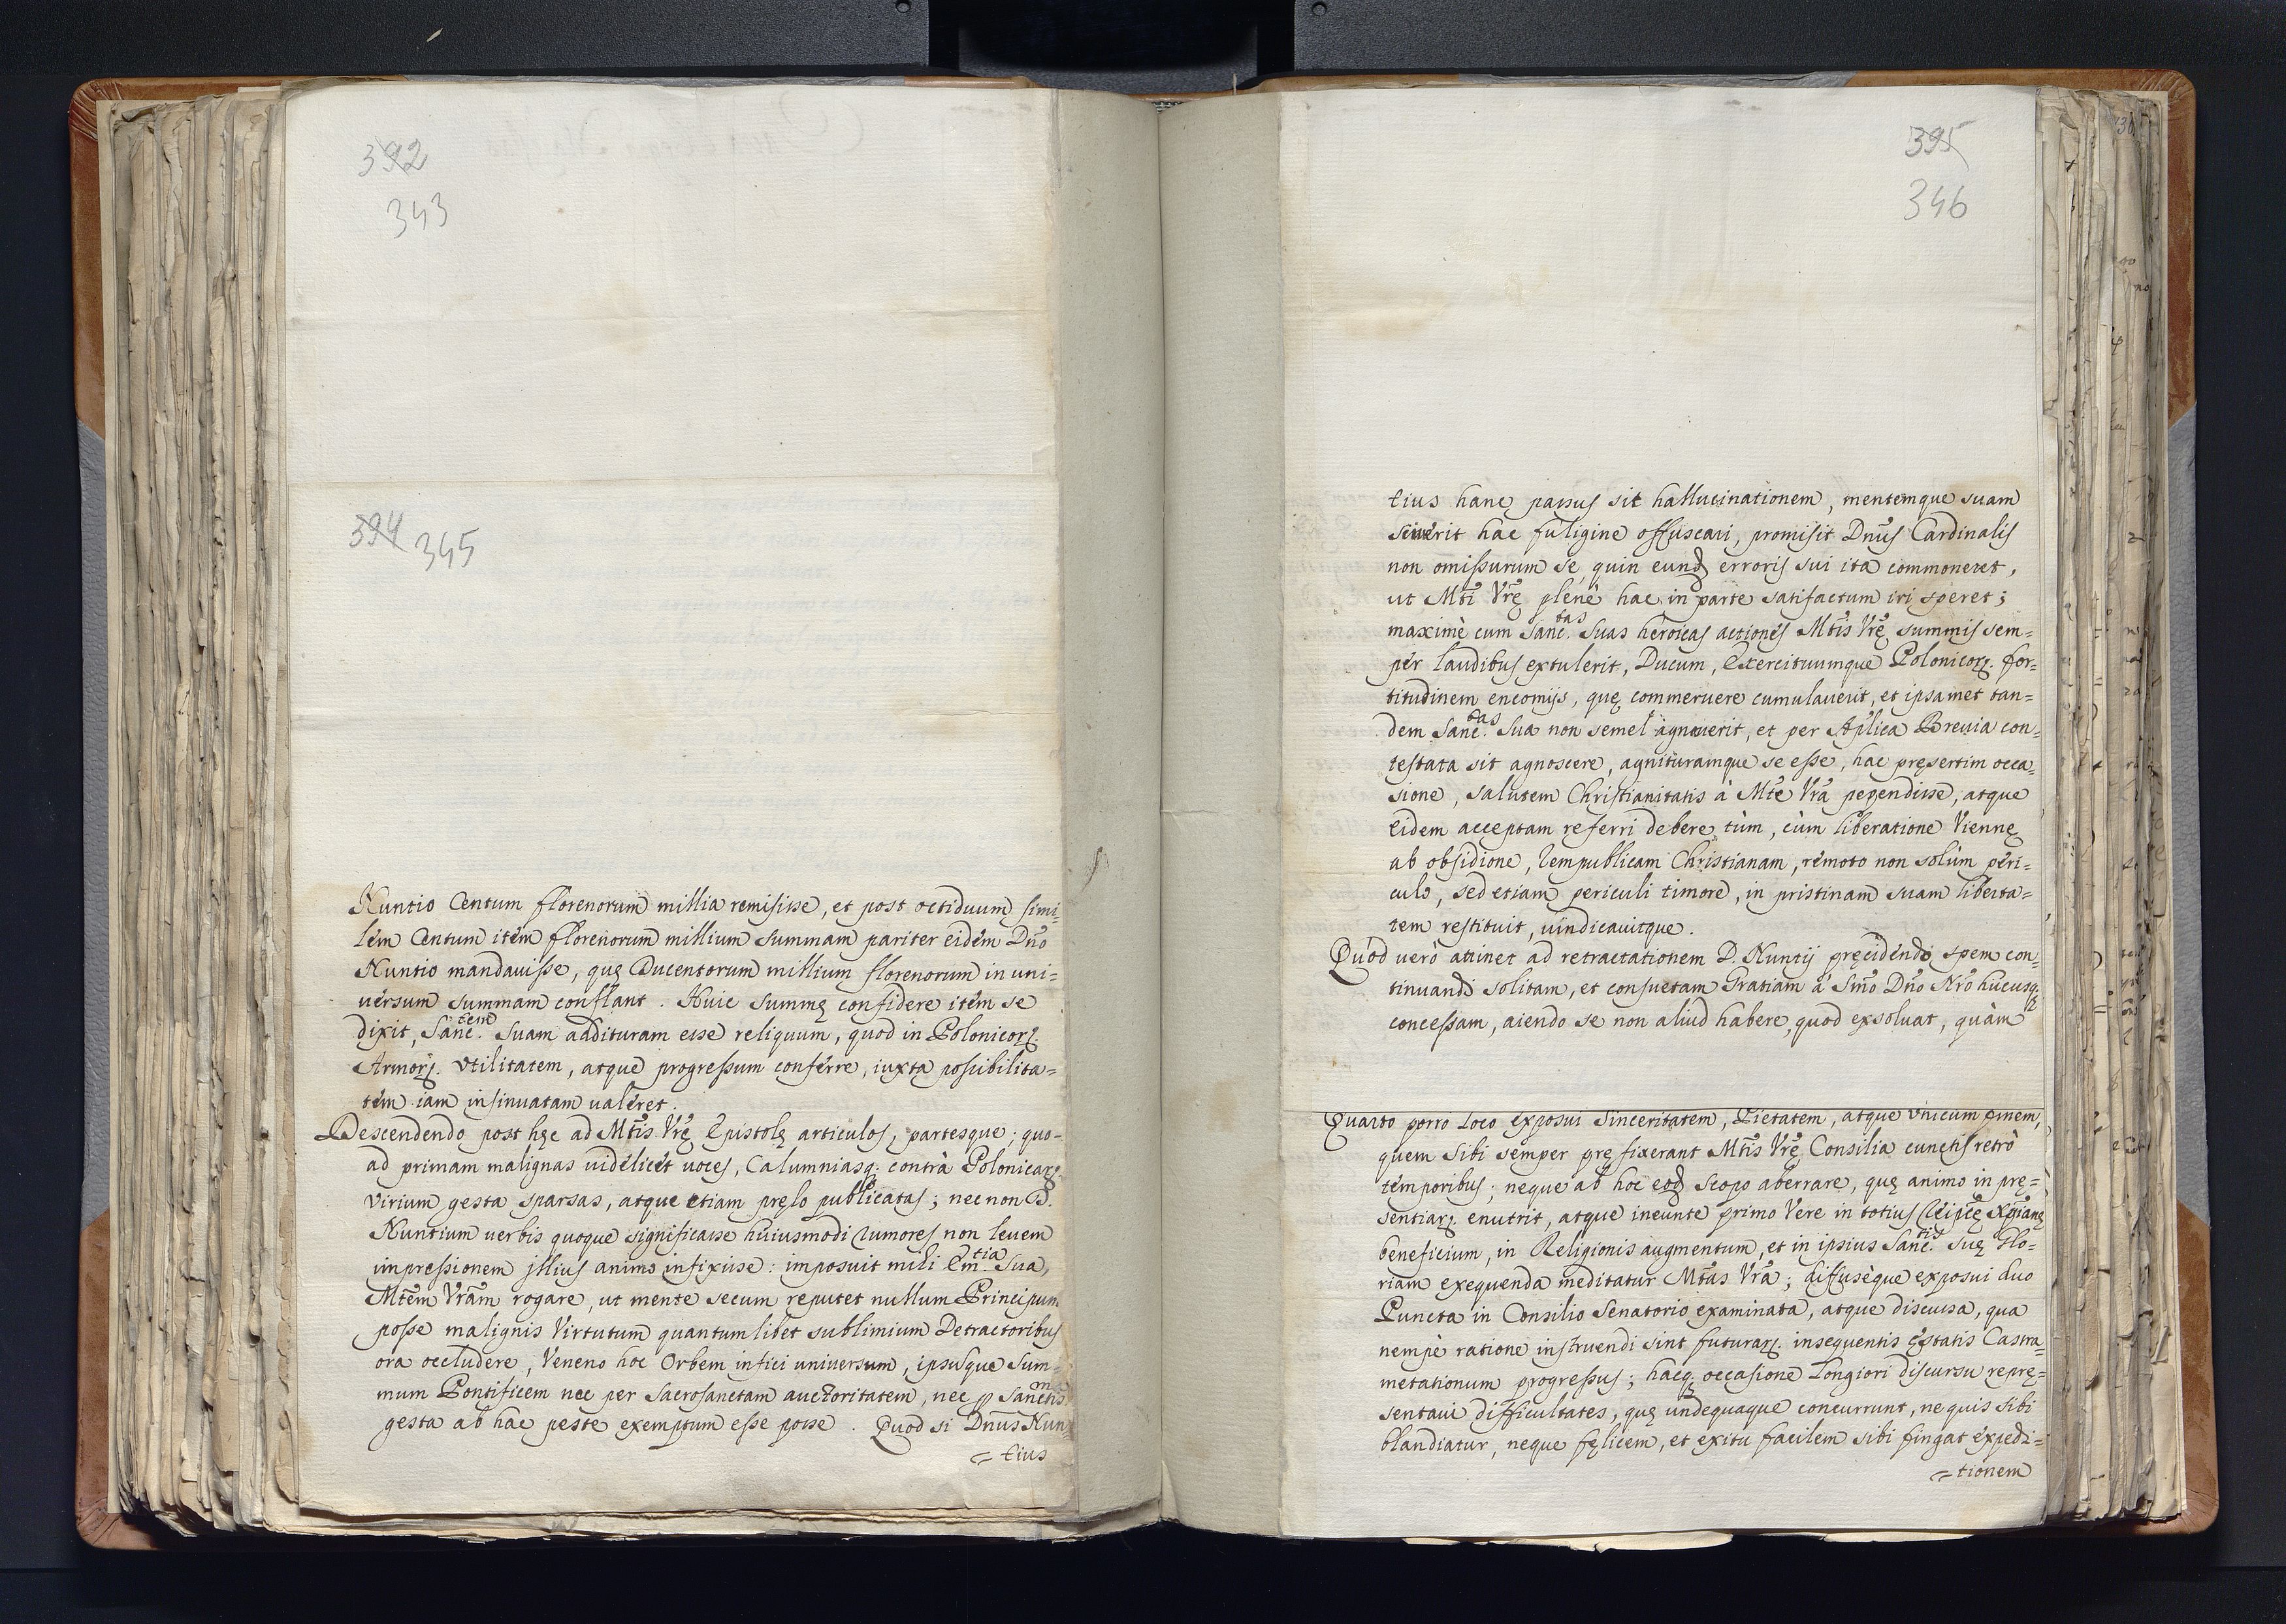 392
343
394 345
Nuntio Centum florenorum millia remisisse, et post octiduum simi-
lem Centum item florenorum millium summam pariter eidem Dno
Nuntio mandavisse, quę Ducentorum millium florenorum in uni-
uersum summam conflant. Huic summę confidere item se
dixit, Sanc.tem Suam addituram esse reliquum, quod in Polonicorꝝ.
Armorꝝ. vtilitatem, atque progressum conferre, iuxta possibilita=
tem iam insinuatam ualeret.
Descendendo post hęc ad Mtis Vrę Epistolę articulos, partesque; quo-
ad primam malignas uidelicet uoces, Calumniasq; contrà Polonicarꝝ.
virium gesta sparsas, atque etiam pręlo publicatas; nec non D.
Nuntium uerbis quoque significasse huiusmodi rumores non leuem
impressionem illius animo infixisse: imposuit mihi Em.tia Sua,
Mtem Vram rogare, ut mente secum reputet nullum Principum
posse malignis Virtutum quantumlibet sublimium Detractoribus
ora occludere, Veneno hoc Orbem infici uniuersum, ipsusque Sum-
mum Pontificem nec per Sacrosanctam auctoritatem, nec ꝑ Sanctis.ma
gesta ab hac peste exemptum esse posse. Quod si Dnus Nun-
= tius
395
346
tius hanc passus sit hallucinationem, mentemque suam
siuerit hac fuligine offuscari, promisit Dnus Cardinalis
non omissurum se, quin eund erroris sui ita commoneret,
ut Mti Vrę plenè hac in parte satisfactum iri speret;
maximè cum Sanc.tas Suas heroicas actiones Mtis Vrę summis sem=
per laudibus extulerit, Ducum, Exercituumque Polonicorꝝ. for=
titudinem encomijs, quę commeruere cumulauerit, et ipsamet tan=
dem Sanc.tas Sua non semel agnouerit, et per Aplica Breuia con=
testata sit agnoscere, agnituramque se esse, hac pręsertim occa=
sione, salutem Christianitatis à Mte Vra pependisse, atque
Eidem acceptam referri debere tùm, cùm liberatione Viennę
ab obsidione, Rempublicam Christianam, remoto non solùm peri=
culo, sed etiam periculi timore, in pristinam suam liberta=
tem restituit, uindicauitque.
Quod uerò attinet ad retractationem D. Nuntij pręcidendo spem con=
tinuandi solitam, et consuetam Gratiam à Smo Dno Nro hucusq;
concessam, aiendo se non aliud habere, quod exsoluat, quàm
Quarto porro Loco exposui Sinceritatem, Pietatem, atque vnicum finem,
quem Sibi semper pręfixerant Mtis Vrę Consilia cunctis retrò
temporibus; neque ab hoc eod Scopo aberrare, quę animo in prę=
sentiarꝝ. enutrit, atque ineunte primo Vere in totius Reipcę Xpianę
beneficium, in Religionis augmentum, et in ipsius Sanc.tis Suę Glo=
riam exequenda meditatur Mtas Vra; diffusèque exposui duo
Puncta in Consilio Senatorio examinata, atque discussa, qua
nempè ratione instruendi sint futurarꝝ. insequentis ęstatis Castra=
metationum progressus; hacq; occasione Longiori discursu reprę=
sentaui difficultates, quę undequaque concurrunt, ne quis sibi
blandiatur, neque fęlicem, et exitu facilem sibi fingat expedi=
= tionem